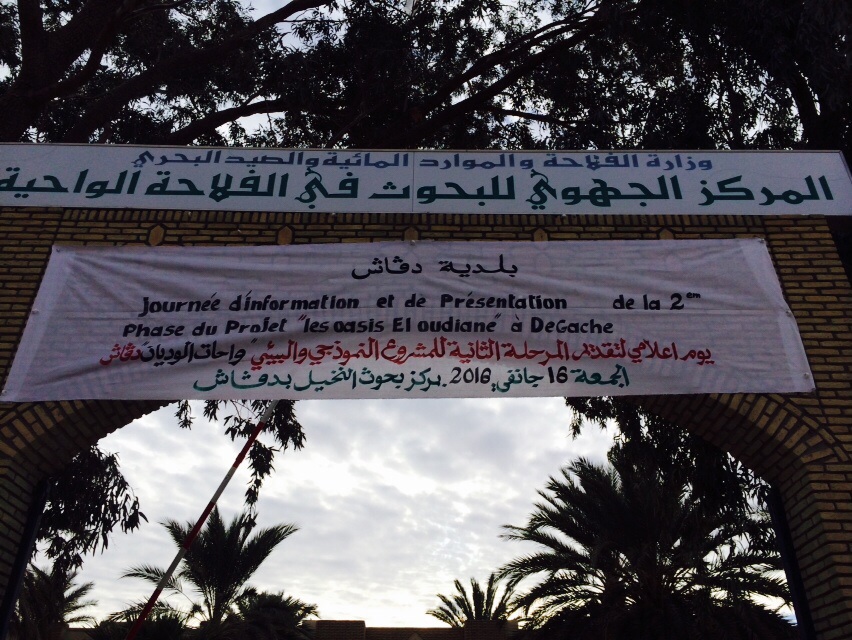 وزارة الفلاحة والموارد المائية والصيد البحري
المركز الجهوي للبحوث في الفلاحة الواحية
بلدية دڤاش
Journée d'information et de Présentation de la 2em
Phase du Projet "les oasis El oudiane" à DeGache
يوم اعلامي لتقديم المرحلة الثانية للمشروع النموذجي والبيئي "واحات الوديان" دڤاش
الجمعة 16 جانفي 2016. مركز بحوث النخيل بدڤاش